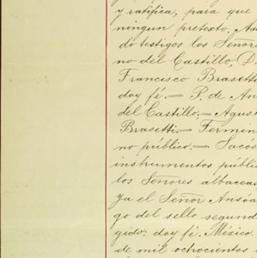 y ratifica, para que
ningun pretexto. As
do testigos los Señores
no del Castillo, D.
Francisco Brasetti
doy fé.— P. de An
del Castillo.— Agus
Brasetti.— Fermin
no público.— Sacós
instrumentos públi
los Señores albaceas
ya el Señor Ansoa
go del sello segund
gido: doy fé. México
de mil ochocientos